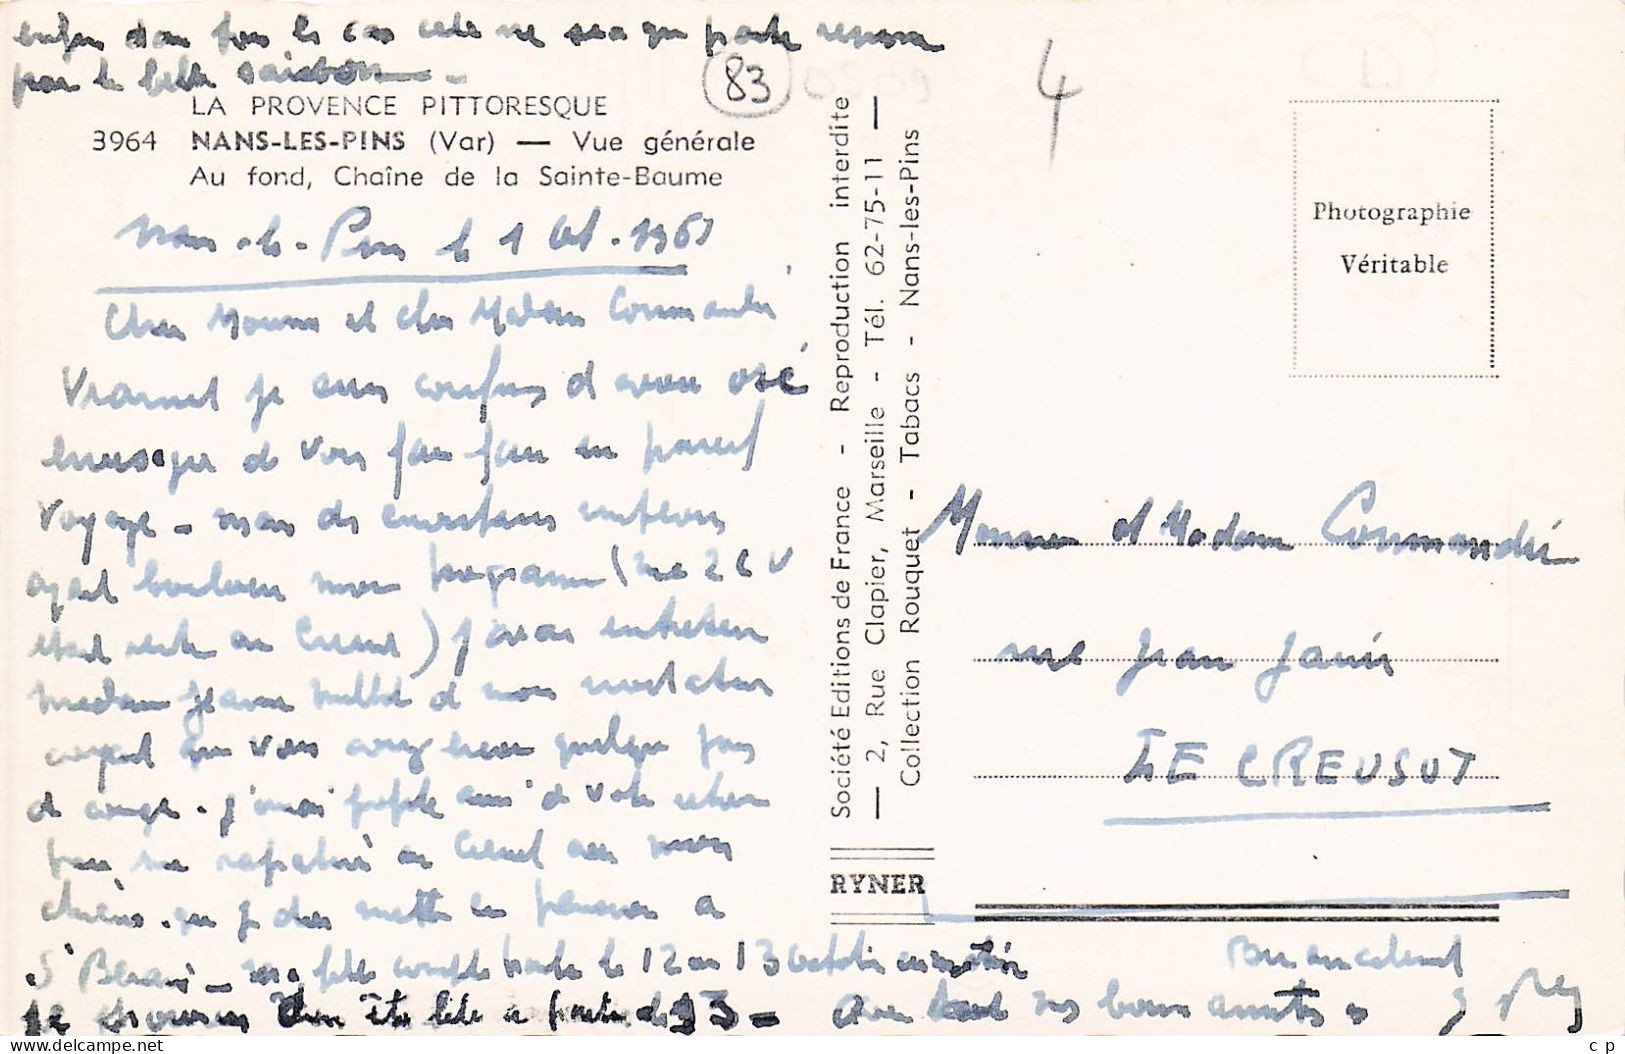 enfin dans tous les cas cela ne sera que partie remise
pour la belle saison -
83
4
LA PROVENCE PITTORESQUE
3964 NANS-LES-PINS (Var) — Vue générale
Au fond, Chaîne de la Sainte-Baume
Nans-les-Pins le 1 Oct. 196
Cher Monsieur et chère Madame Commandré
Vraiment je suis confus d'avoir osé
envisager de vous faire faire un pareil
voyage - mais des circonstances
ayant bouleversé mon programme (ma 2 CV
étant restée au Creusot) j'avais entretenu
madame Jeanne de mon
croyant que vous aviez encore quelques jours
de congé. j'aurai profité ainsi de votre retour
pour me rapatrier au Creusot avec mes
chiens. que je dois mettre en pension à
St - ma fille compte partir le 12 ou 13 octobre
Je d'en être libre à partir du 13 -
Avec tous nos bons amitiés
Société Editions de France - Reproduction interdite
— 2, Rue Clapier, Marseille - Tél. 62-75-11 —
Collection Rouquet - Tabacs - Nans-les-Pins
RYNER
Photographie
Véritable
Monsieur et Madame Commandré
rue Jean Janin
LE CREUSOT
Bien amicalement
cp